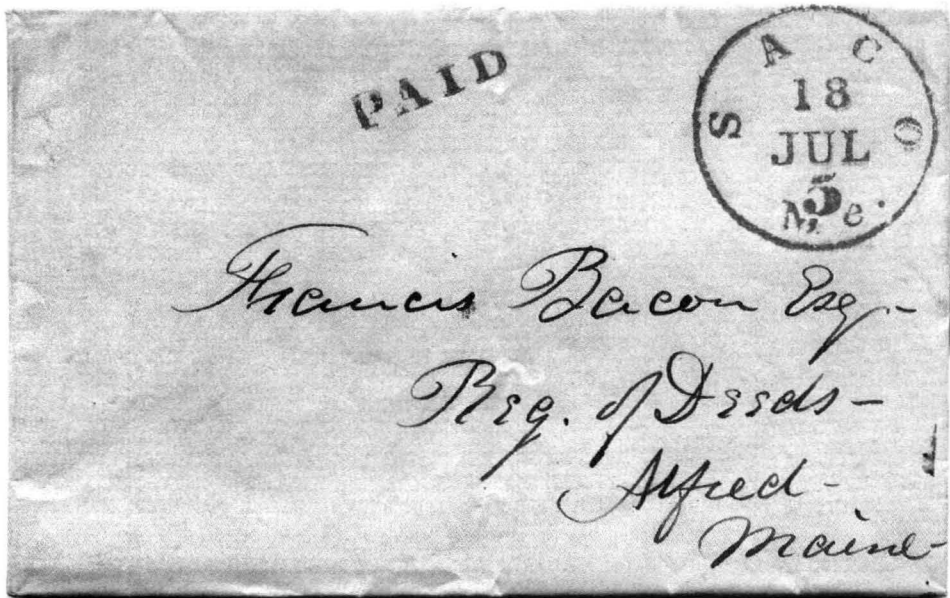 PAID
SACO
18
JUL
5
Me.
Francis Bacon Esq.-
Reg. of Deeds-
Alfred-
Maine-